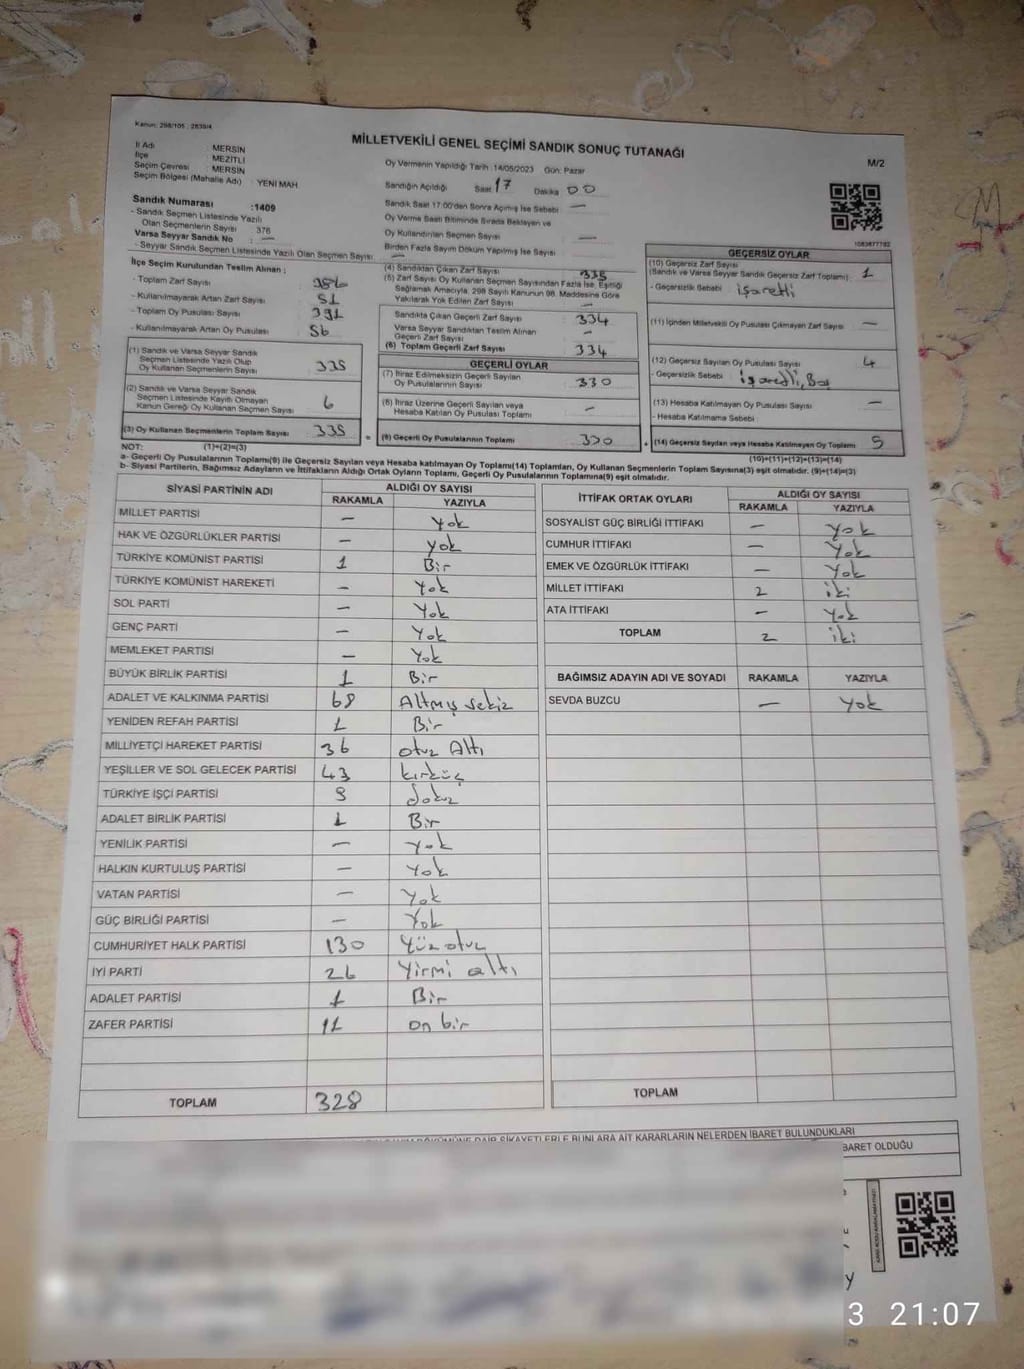 Kanun: 298/105 : 2839/4
MİLLETVEKİLİ GENEL SEÇİMİ SANDIK SONUÇ TUTANAĞI
M/2
İl Adı MERSİN
İlçe MEZİTLİ
Seçim Çevresi MERSİN
Seçim Bölgesi (Mahalle Adı) : YENİ MAH
Sandık Numarası :1409
- Sandık Seçmen Listesinde Yazılı
Olan Seçmenlerin Sayısı 376
Varsa Seyyar Sandık No : —
- Seyyar Sandık Seçmen Listesinde Yazılı Olan Seçmen Sayısı: —
İlçe Seçim Kurulundan Teslim Alınan ;
- Toplam Zarf Sayısı 386
- Kullanılmayarak Artan Zarf Sayısı 51
- Toplam Oy Pusulası Sayısı 391
- Kullanılmayarak Artan Oy Pusulası 56
(1) Sandık ve Varsa Seyyar Sandık
Seçmen Listesinde Yazılı Olup
Oy Kullanan Seçmenlerin Sayısı 335
(2) Sandık ve Varsa Seyyar Sandık
Seçmen Listesinde Kayıtlı Olmayan
Kanun Gereği Oy Kullanan Seçmen Sayısı 6
(3) Oy Kullanan Seçmenlerin Toplam Sayısı 335
Oy Vermenin Yapıldığı Tarih :14/05/2023 Gün: Pazar
Sandığın Açıldığı Saat 17 Dakika 00
Sandık Saat 17:00'den Sonra Açılmış İse Sebebi —
Oy Verme Saati Bitiminde Sırada Bekleyen ve
Oy Kullandırılan Seçmen Sayısı —
Birden Fazla Sayım Döküm Yapılmış İse Sayısı —
(4) Sandıktan Çıkan Zarf Sayısı 335
(5) Zarf Sayısı Oy Kullanan Seçmen Sayısından Fazla İse, Eşitliği
Sağlamak Amacıyla, 298 Sayılı Kanunun 98. Maddesine Göre
Yakılarak Yok Edilen Zarf Sayısı —
Sandıkta Çıkan Geçerli Zarf Sayısı 334
Varsa Seyyar Sandıktan Teslim Alınan
Geçerli Zarf Sayısı —
(6) Toplam Geçerli Zarf Sayısı 334
GEÇERLİ OYLAR
(7) İtiraz Edilmeksizin Geçerli Sayılan
Oy Pusulalarının Sayısı 330
(8) İtiraz Üzerine Geçerli Sayılan veya
Hesaba Katılan Oy Pusulası Toplamı —
(9) Geçerli Oy Pusulalarının Toplamı 330
1083877782
GEÇERSİZ OYLAR
(10) Geçersiz Zarf Sayısı
(Sandık ve Varsa Seyyar Sandık Geçersiz Zarf Toplamı) 1
- Geçersizlik Sebebi : işaretli
(11) İçinden Milletvekili Oy Pusulası Çıkmayan Zarf Sayısı —
(12) Geçersiz Sayılan Oy Pusulası Sayısı 4
- Geçersizlik Sebebi : işaretli, Boş
(13) Hesaba Katılmayan Oy Pusulası Sayısı —
- Hesaba Katılmama Sebebi :
(14) Geçersiz Sayılan veya Hesaba Katılmayan Oy Toplamı 5
NOT: (1)+(2)=(3)
(10)+(11)+(12)+(13)=(14)
a- Geçerli Oy Pusulalarının Toplamı(9) ile Geçersiz Sayılan veya Hesaba katılmayan Oy Toplamı(14) Toplamları, Oy Kullanan Seçmenlerin Toplam Sayısına(3) eşit olmalıdır. (9)+(14)=(3)
b- Siyasi Partilerin, Bağımsız Adayların ve İttifakların Aldığı Ortak Oyların Toplamı, Geçerli Oy Pusulalarının Toplamına(9) eşit olmalıdır.
SİYASİ PARTİNİN ADI ALDIĞI OY SAYISI
RAKAMLA YAZIYLA
MİLLET PARTİSİ — Yok
HAK VE ÖZGÜRLÜKLER PARTİSİ — Yok
TÜRKİYE KOMÜNİST PARTİSİ 1 Bir
TÜRKİYE KOMÜNİST HAREKETİ — Yok
SOL PARTİ — Yok
GENÇ PARTİ — Yok
MEMLEKET PARTİSİ — Yok
BÜYÜK BİRLİK PARTİSİ 1 Bir
ADALET VE KALKINMA PARTİSİ 68 Altmış sekiz
YENİDEN REFAH PARTİSİ 1 Bir
MİLLİYETÇİ HAREKET PARTİSİ 36 otuz Altı
YEŞİLLER VE SOL GELECEK PARTİSİ 43 kırküç
TÜRKİYE İŞÇİ PARTİSİ 9 dokuz
ADALET BİRLİK PARTİSİ 1 Bir
YENİLİK PARTİSİ — Yok
HALKIN KURTULUŞ PARTİSİ — Yok
VATAN PARTİSİ — Yok
GÜÇ BİRLİĞİ PARTİSİ — Yok
CUMHURİYET HALK PARTİSİ 130 Yüz otuz
İYİ PARTİ 26 Yirmi altı
ADALET PARTİSİ 1 Bir
ZAFER PARTİSİ 11 on bir
TOPLAM 328
İTTİFAK ORTAK OYLARI ALDIĞI OY SAYISI
RAKAMLA YAZIYLA
SOSYALİST GÜÇ BİRLİĞİ İTTİFAKI — Yok
CUMHUR İTTİFAKI — Yok
EMEK VE ÖZGÜRLÜK İTTİFAKI — Yok
MİLLET İTTİFAKI 2 iki
ATA İTTİFAKI — Yok
TOPLAM 2 iki
BAĞIMSIZ ADAYIN ADI VE SOYADI RAKAMLA YAZIYLA
SEVDA BUZCU — Yok
TOPLAM
DÖKÜMÜNE DAİR ŞİKAYETLERLE BUNLARA AİT KARARLARIN NELERDEN İBARET BULUNDUKLARI
İBARET OLDUĞU
3 21:07